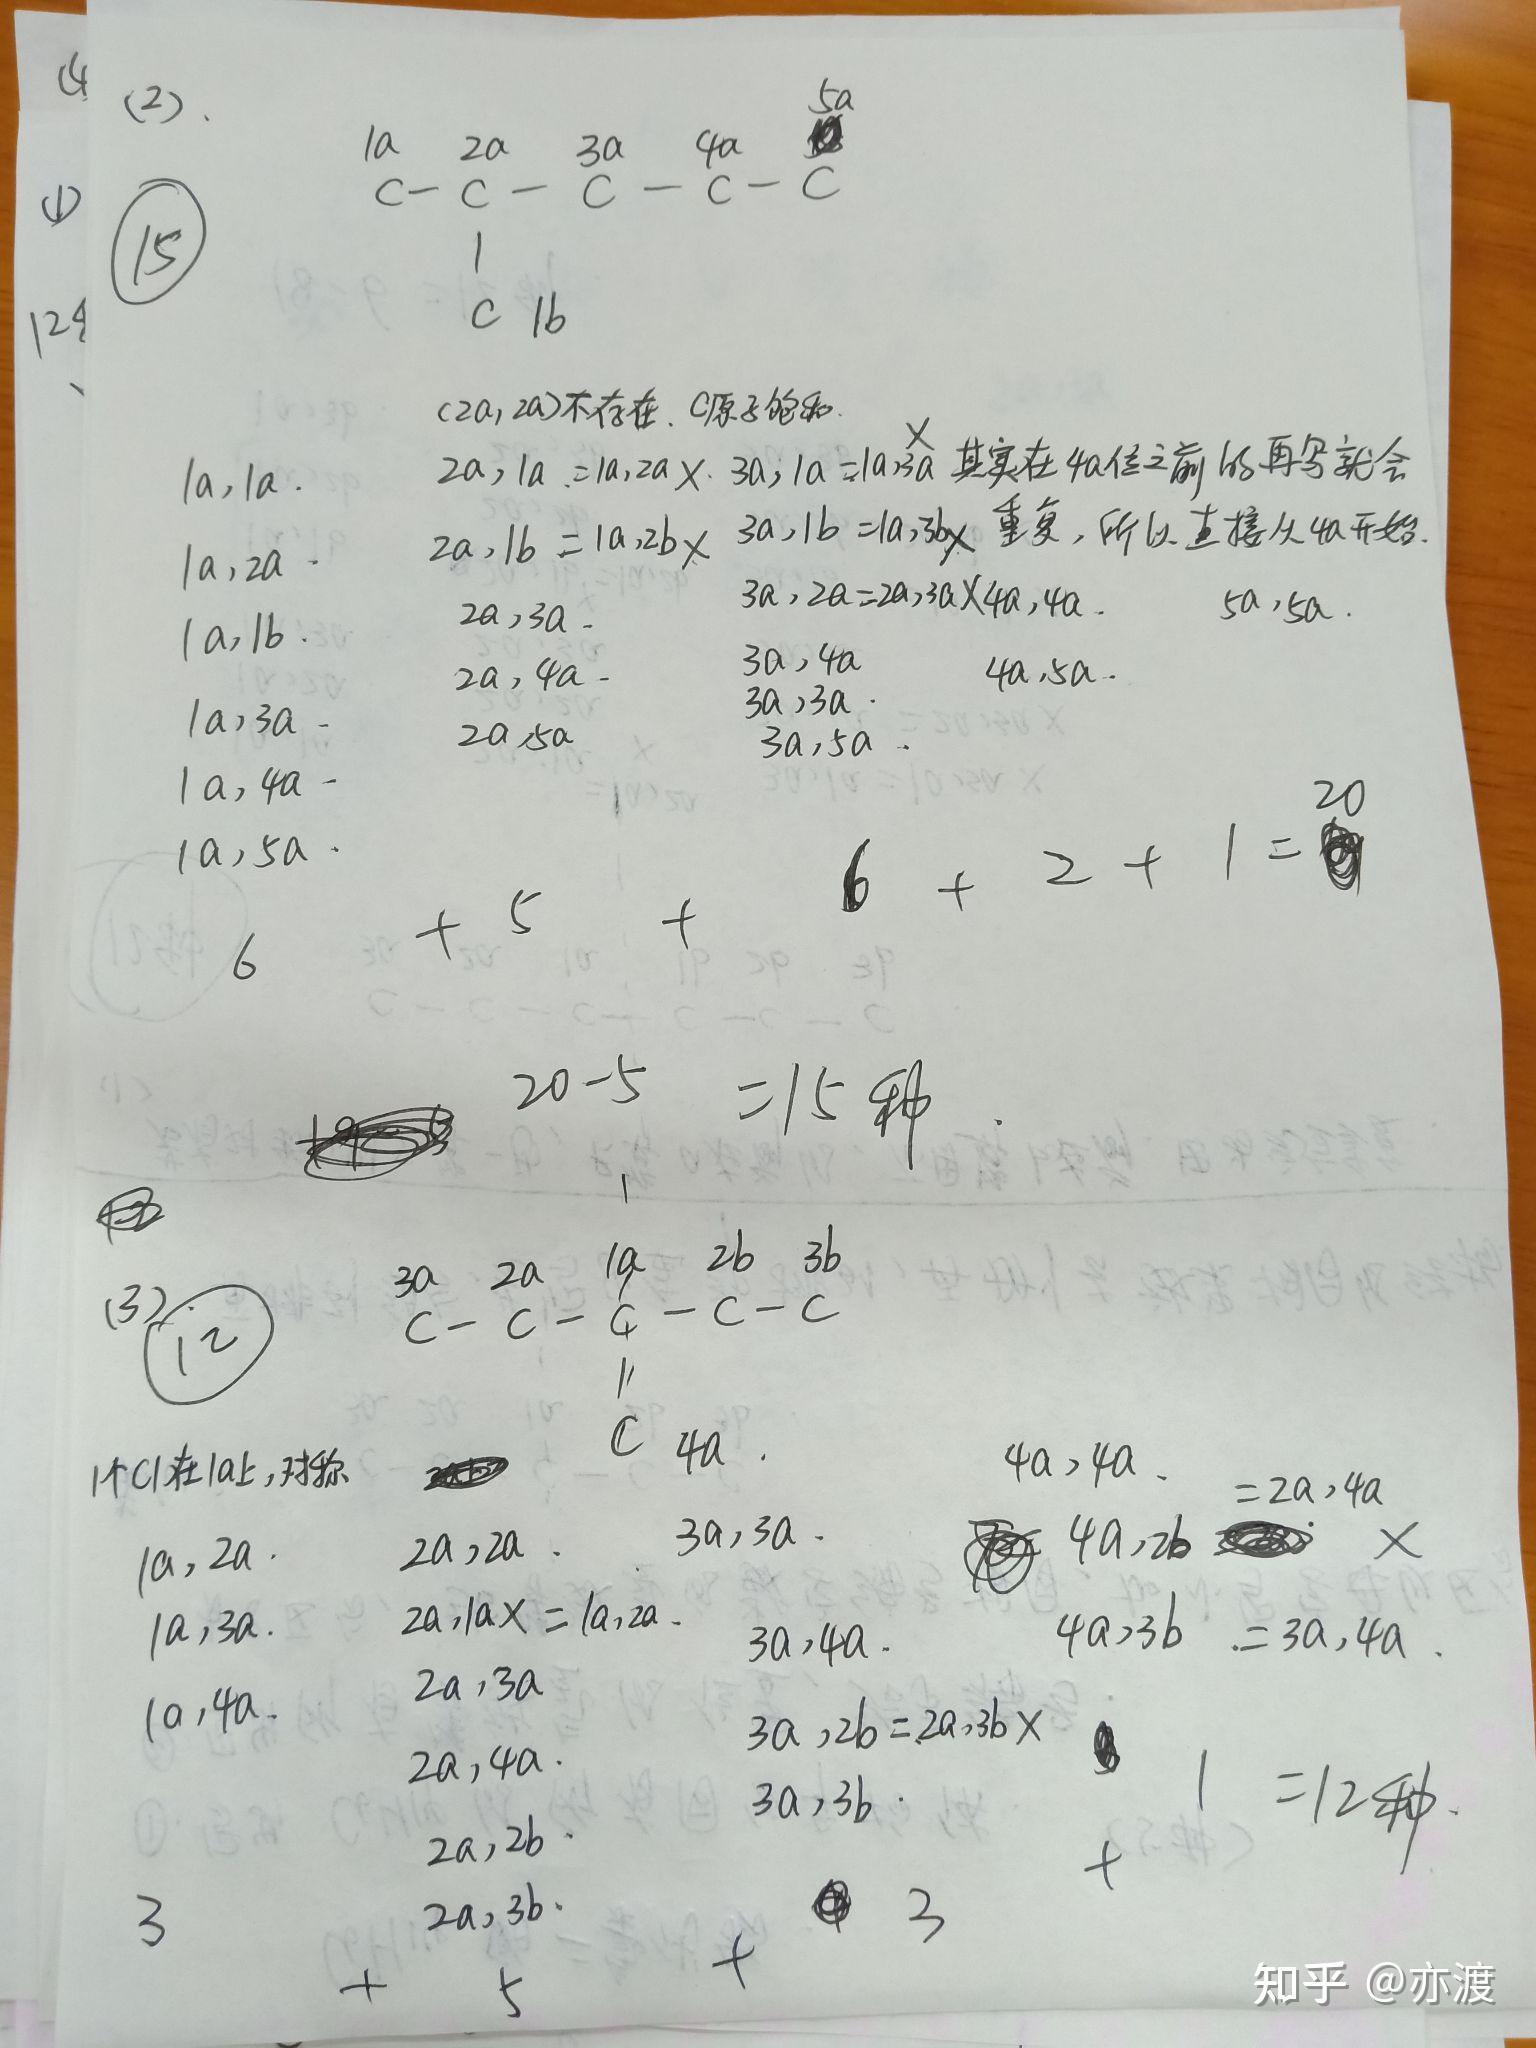 (2).
5a
1a 2a 3a 4a
C - C - C - C - C
15
C 1b
12
(2a, 2a)不存在. C原子饱和.
1a, 1a. 2a, 1a = 1a, 2a X. 3a, 1a = 1a, 3a X 其实在4a位之前的再写就会
1a, 2a. 2a, 1b = 1a, 2b X 3a, 1b = 1a, 3b X 重复, 所以直接从4a开始.
1a, 1b. 2a, 3a. 3a, 2a = 2a, 3a X 4a, 4a. 5a, 5a.
1a, 3a. 2a, 4a. 3a, 4a 4a, 5a.
3a, 3a.
1a, 4a. 2a, 5a 3a, 5a.
1a, 5a.
6 + 5 + 6 + 2 + 1 = 20
20 - 5 = 15种.
3a 2a 1a 2b 3b
(3). C - C - C - C - C
12
C 4a.
1个Cl在1a上, 对称 4a, 4a.
= 2a, 4a
1a, 2a. 2a, 2a. 3a, 3a. 4a, 2b X
1a, 3a. 2a, 1a X = 1a, 2a. 3a, 4a. 4a, 3b. = 3a, 4a.
1a, 4a. 2a, 3a
2a, 4a. 3a, 2b = 2a, 3b X
3a, 3b.
2a, 2b.
2a, 3b.
3 + 5 + 3 + 1 = 12种.
知乎 @亦渡